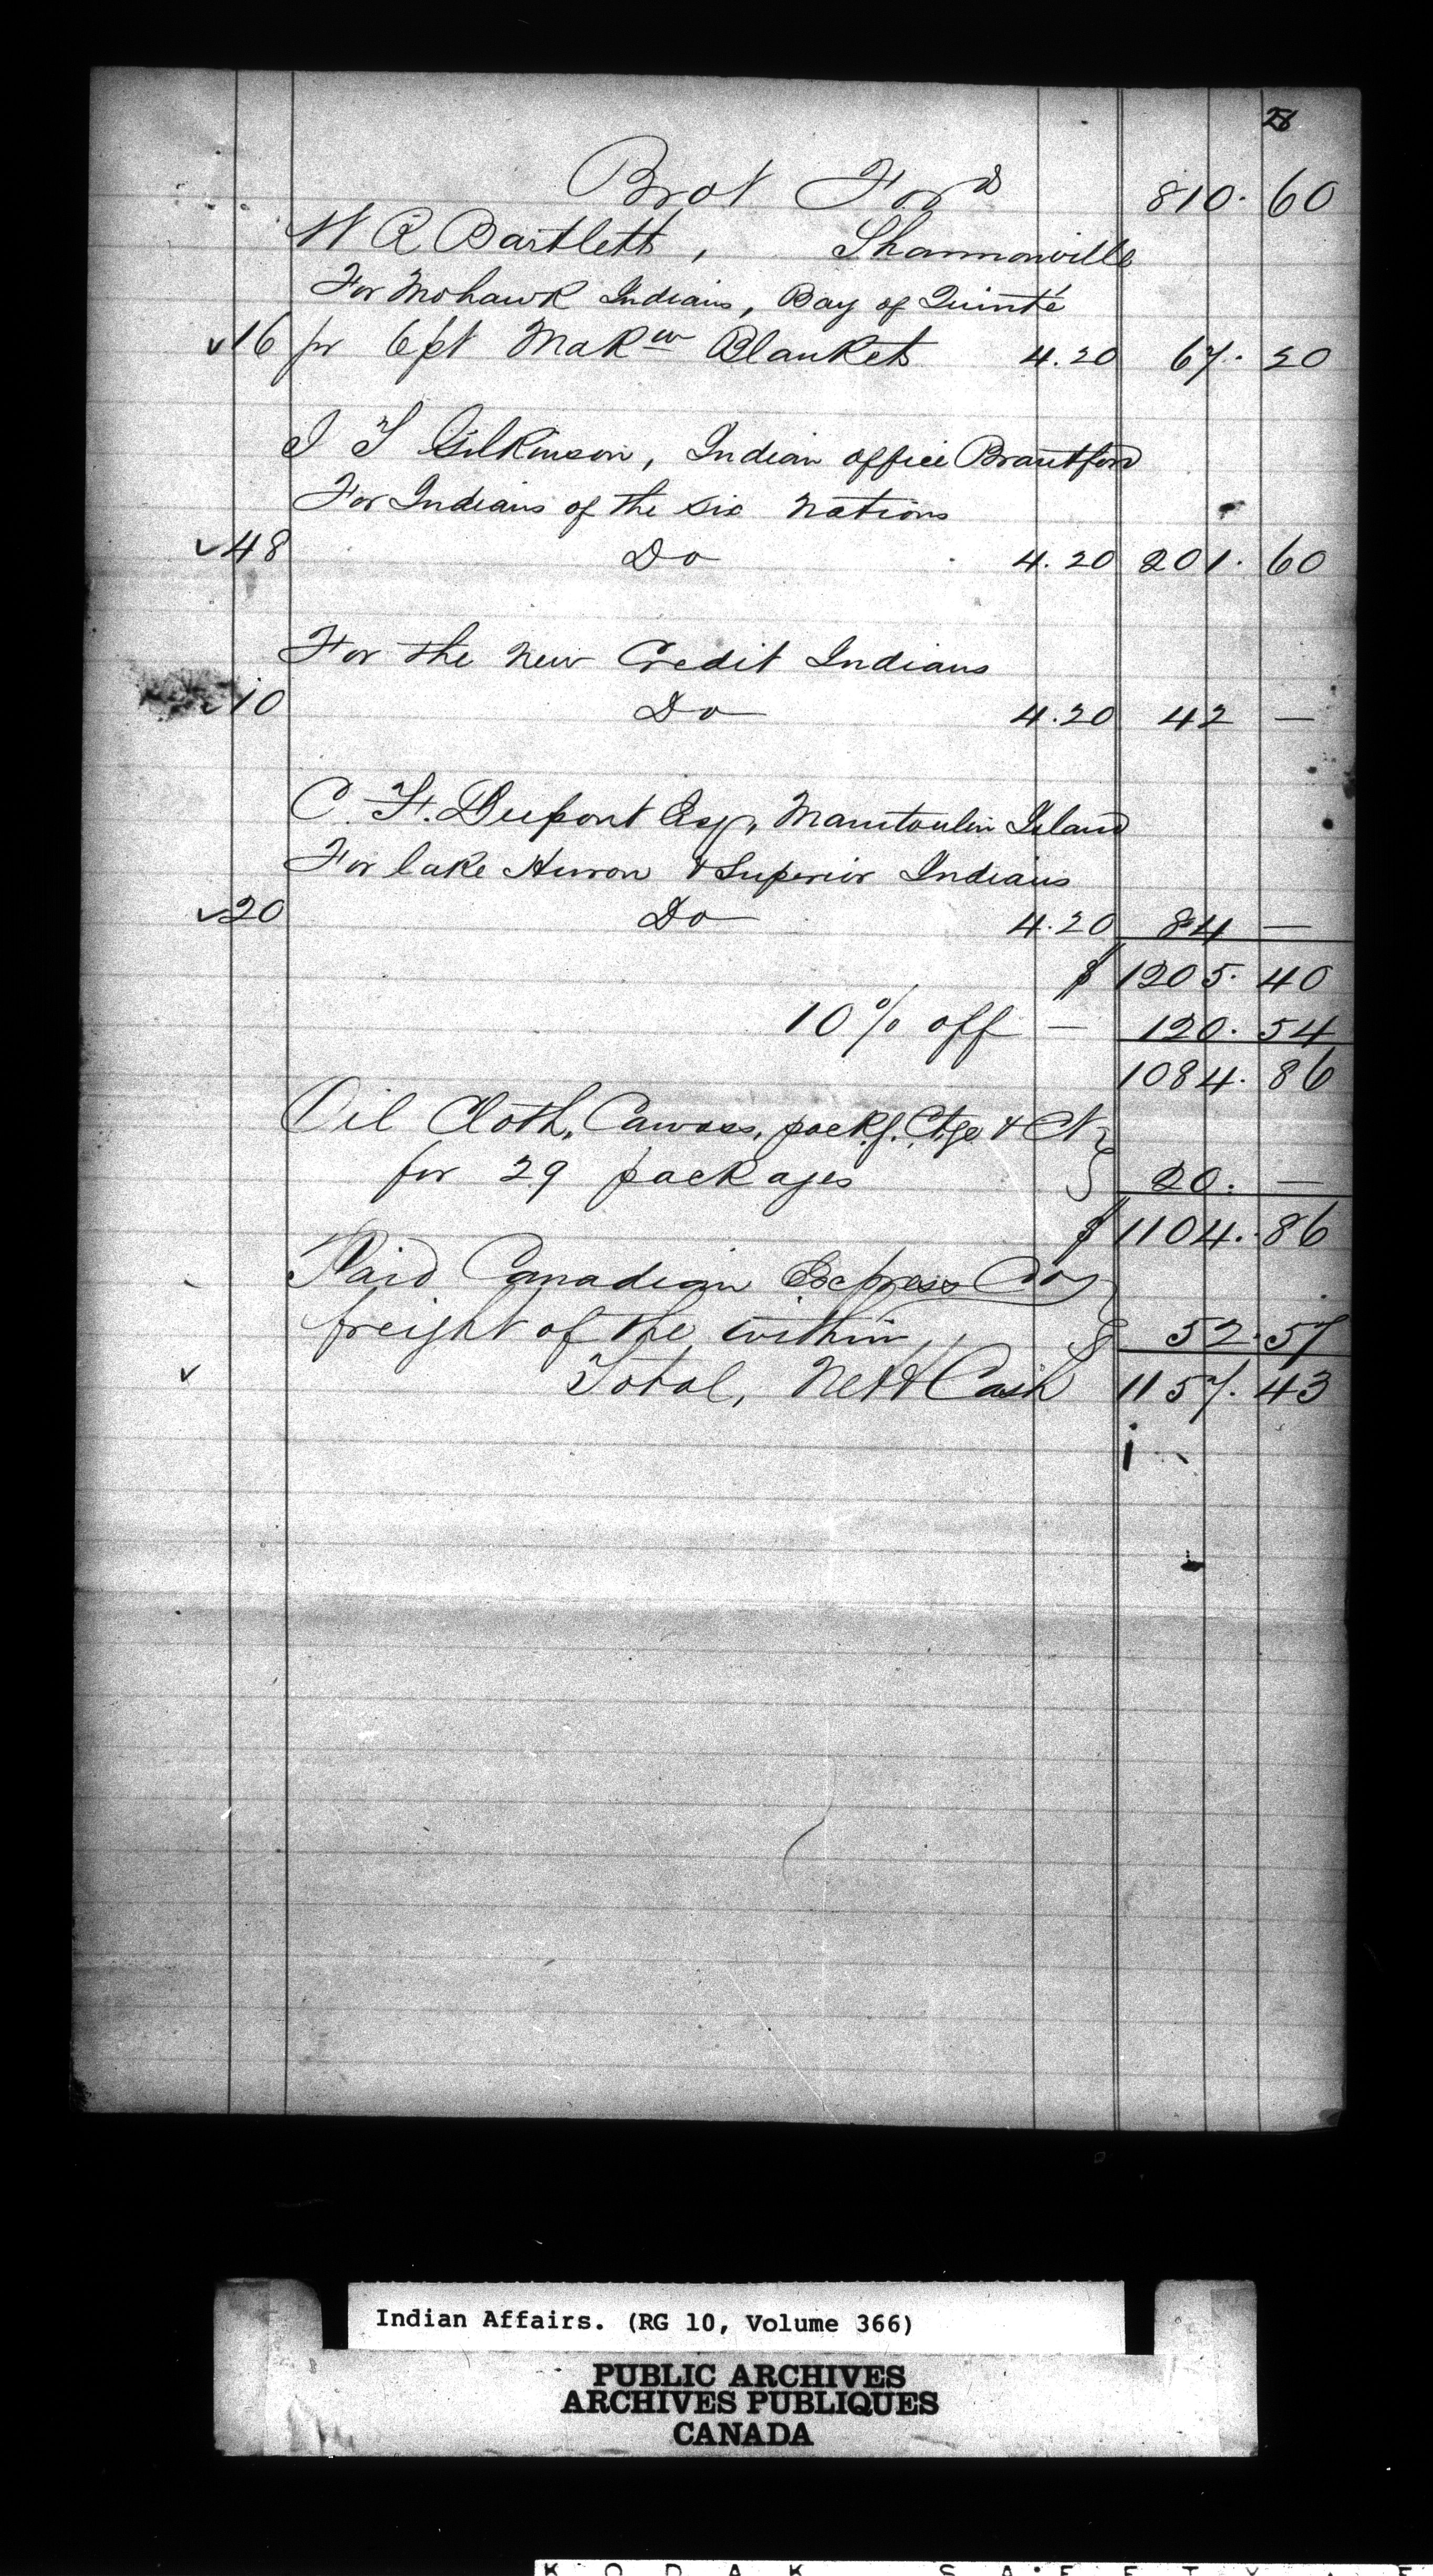 28
Brot Ford 810. 60
W R Bartlett, Shannonville
For Mohawk Indians, Bay of Quinté
✓16 pr 6pt Makw Blankets 4.20 67. 20
J T Gilkinson, Indian office Brantford
For Indians of the six Nations
✓48 Do 4.20 201. 60
For the New Credit Indians
✓10 Do 4.20 42 —
C. T. Dupont Esq, Manitoulin Island
For lake Huron & Superior Indians
✓20 Do 4.20 84 —
$ 1205. 40
10% off — 120. 54
1084. 86
Oil Cloth, Canvass, packg. Ctge &
for 29 packages 20. —
$ 1104. 86
Paid Canadian Express Coy
freight of the within 52. 57
✓ Total, Nett Cash 1157. 43
Indian Affairs. (RG 10, Volume 366)
PUBLIC ARCHIVES
ARCHIVES PUBLIQUES
CANADA
K O D A K S A F E T Y